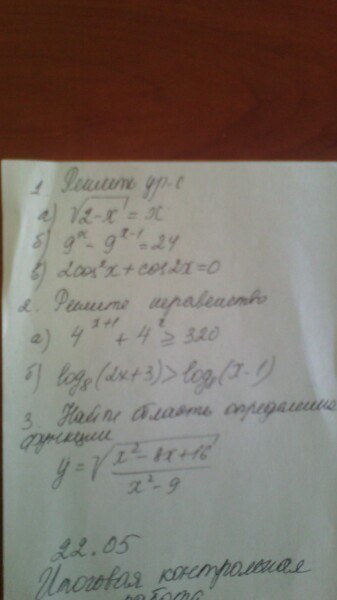 1. Решить ур-е
а) √2-x = x
б) 9^x - 9^(x-1) = 24
в) 2cos²x + cos2x = 0
2. Решите неравенство
а) 4^(x+1) + 4^x ≥ 320
б) log₈(2x+3) > log₈(x-1)
3. Найти область определения
функции
y = √((x² - 8x + 16)/(x² - 9))
22.05
Итоговая контрольная
работа